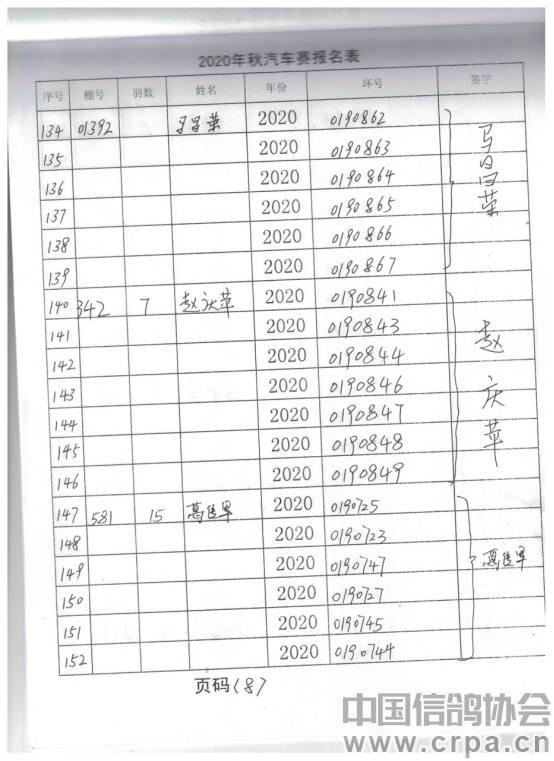 2020年秋汽车赛报名表
序号 棚号 羽数 姓名 年份 环号 签字
134 01392 马昌荣 2020 0190862 马昌荣
135 2020 0190863
136 2020 0190864
137 2020 0190865
138 2020 0190866
139 2020 0190867
140 342 7 赵庆苹 2020 0190841 赵庆苹
141 2020 0190843
142 2020 0190844
143 2020 0190846
144 2020 0190847
145 2020 0190848
146 2020 0190849
147 581 15 2020 0190725
148 2020 0190723
149 2020 0190747
150 2020 0190727
151 2020 0190745
152 2020 0190744
页码(8)
中国信鸽协会
www.crpa.cn